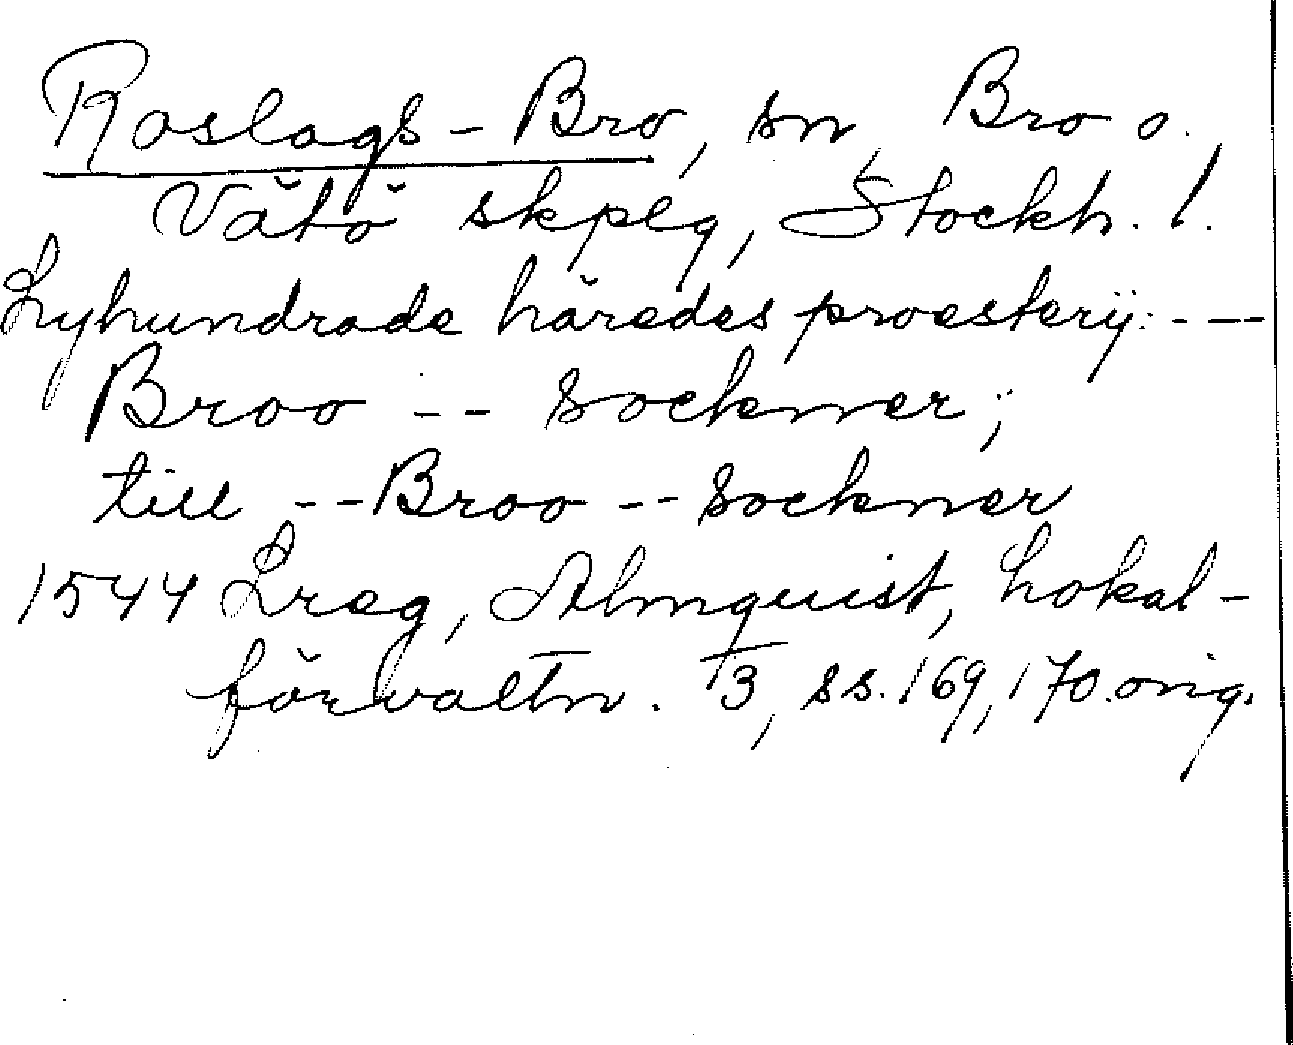 Roslags-Bro, sn, Bro o.
Vätö skplg, Stockh. l.
Lyhundrade häredes proesterij: - --
Broo -- sockner;
till -- Broo -- sockner
1544 Lreg, Almquist, Lokal-
förvaltn. I3, ss. 169, 170. orig.